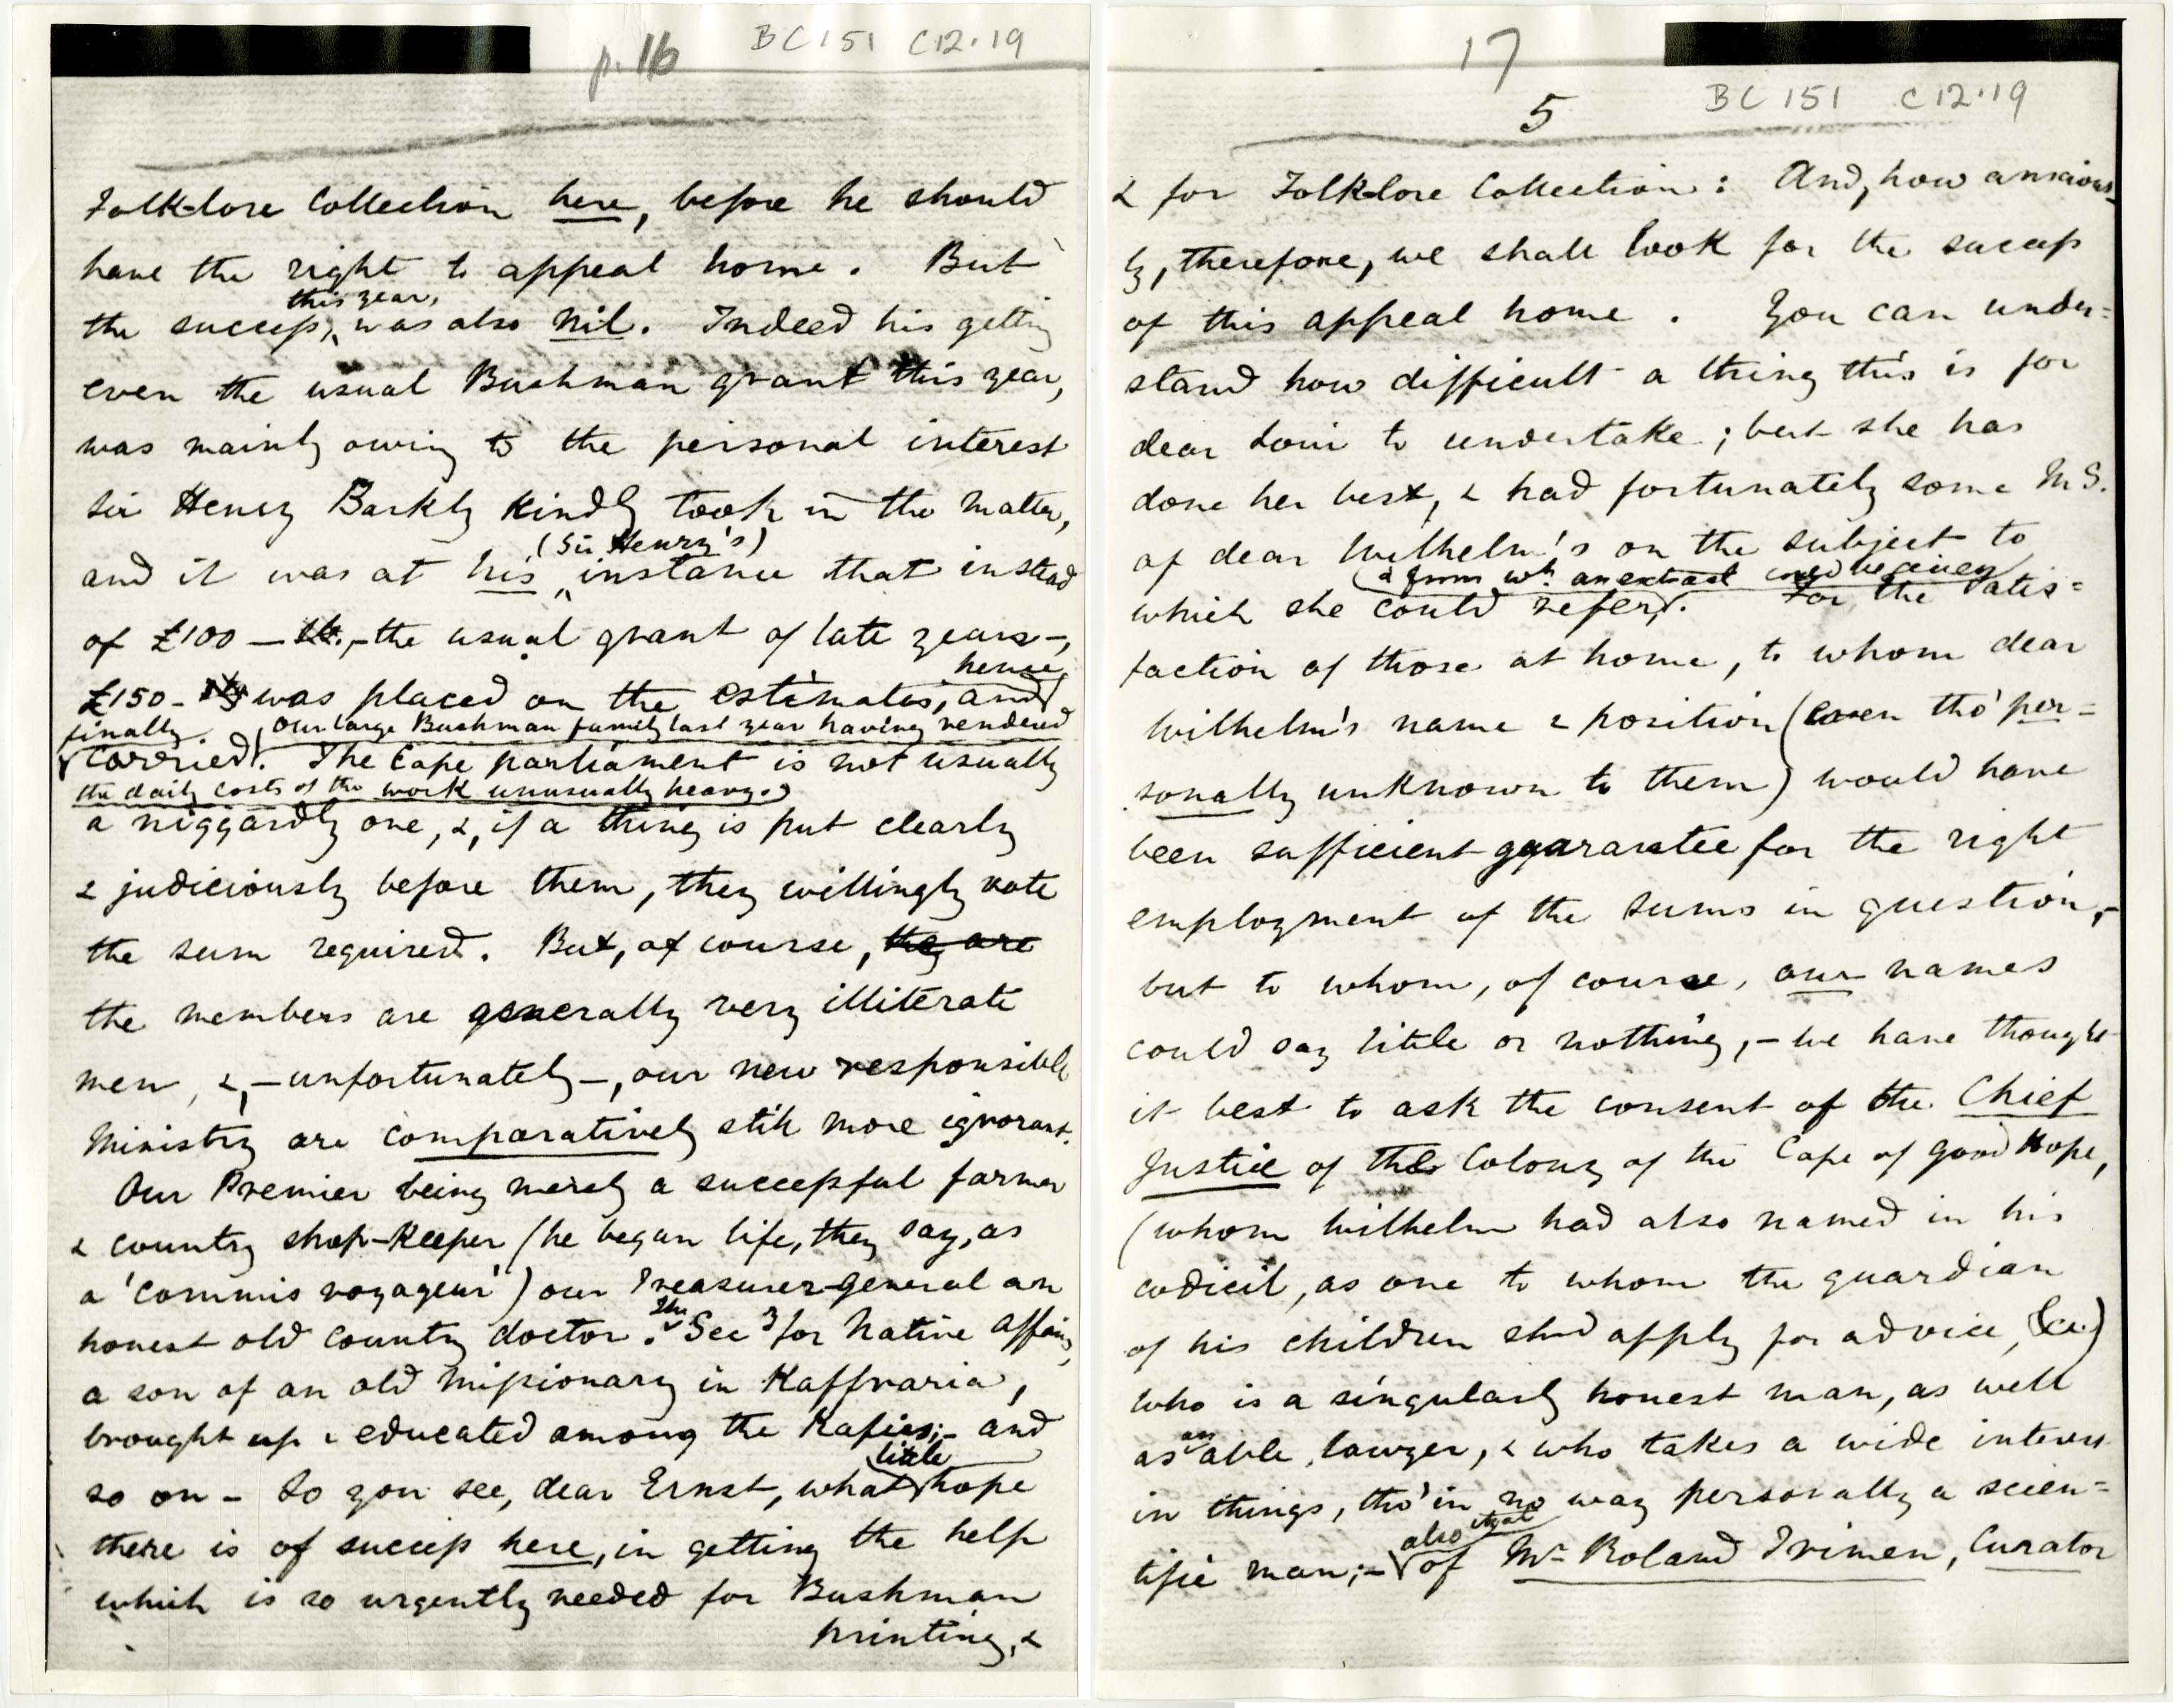 p. 16 BC151 C12.19
Folk-lore Collection here, before he should
have the right to appeal home. But
this year,
the success, was also nil. Indeed his getting
even the usual Bushman grant this year,
was mainly owing to the personal interest
Sir Henry Barkly kindly took in the matter,
(Sir Henry's)
and it was at his instance that instead
of £100 – the usual grant of late years –,
hence
£150 – was placed on the estimates, and
finally. (Our large Bushman family last year having rendered
carried. The Cape parliament is not usually
the daily costs of the work unusually heavy.)
a niggardly one, &, if a thing is put clearly
& judiciously before them, they willingly vote
the sum required. But, of course, they are
the members are generally very illiterate
men, &, – unfortunately –, our new responsible
Ministry are comparatively still more ignorant.
Our Premier being merely a successful farmer
& country shop-keeper (he began life, they say, as
a 'commis voyageur') our Treasurer-general an
The
honest old country doctor. Secy for Native Affairs,
a son of an old Missionary in Kaffraria,
brought up & educated among the Kafirs; – and
little
so on – So you see, dear Ernst, what hope
there is of success here, in getting the help
which is so urgently needed for Bushman
printing, &
17
BC151 C12.19
5
& for Folk-lore Collection: And, how anxious-
ly, therefore, we shall look for the success
of this appeal home. You can under=
stand how difficult a thing this is for
dear Loui to undertake; but she has
done her best, & had fortunately some M.S.
of dear Wilhelm's on the subject to
(& from wh. an extract could be given)
which she could refer. For the satis=
faction of those at home, to whom dear
Wilhelm's name & position (even tho' per=
sonally unknown to them) would have
been sufficient guarantee for the right
employment of the sums in question, –
but to whom, of course, our names
could say little or nothing, – we have thought
it best to ask the consent of the Chief
Justice of the Colony of the Cape of Good Hope,
(whom Wilhelm had also named in his
codicil, as one to whom the guardian
of his children shd apply for advice, &c.)
who is a singularly honest man, as well
an
as able lawyer, & who takes a wide interest
in things, tho' in no way personally a scien=
also that
tific man; – of Mr Roland Trimen, Curator